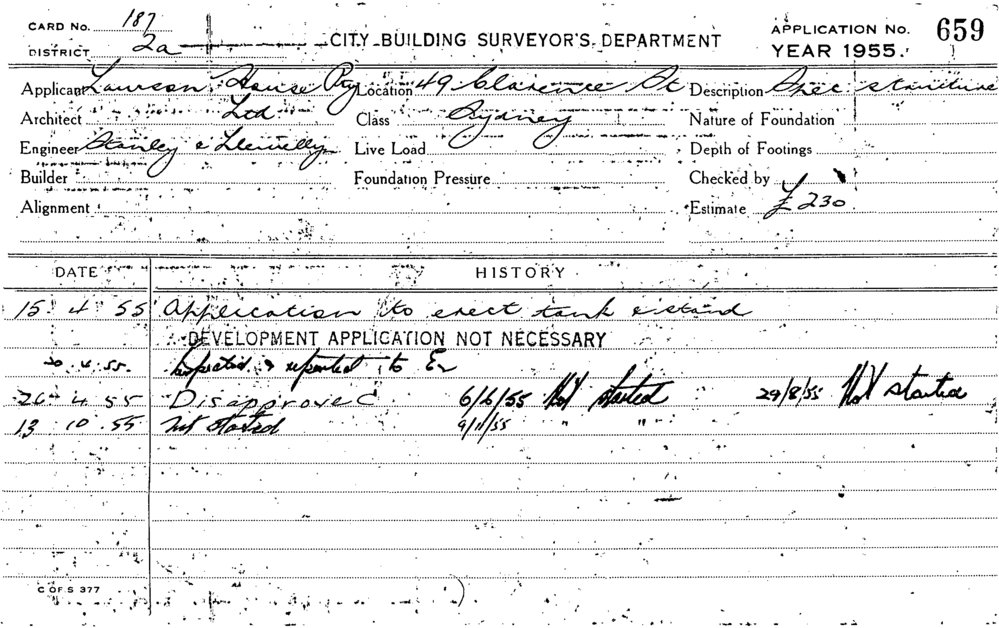 CARD NO. 187
DISTRICT 2a
CITY BUILDING SURVEYOR'S DEPARTMENT
APPLICATION NO. 659
YEAR 1955.
Applicant Lawson House Pty Location 49 Clarence St Description Spec structure
Architect Ltd Class Sydney Nature of Foundation
Engineer Stanley & Llewellyn Live Load Depth of Footings
Builder Foundation Pressure Checked by
Alignment Estimate £230
DATE HISTORY
15 4 55 Application to erect tank &stand
DEVELOPMENT APPLICATION NOT NECESSARY
20.4.55. Inspected & reported to
26 4 55 Disapproved 6/6/55 Not started 29/8/55 Not started
13 10 55 Not started 9/11/55 " "
C OF S 377